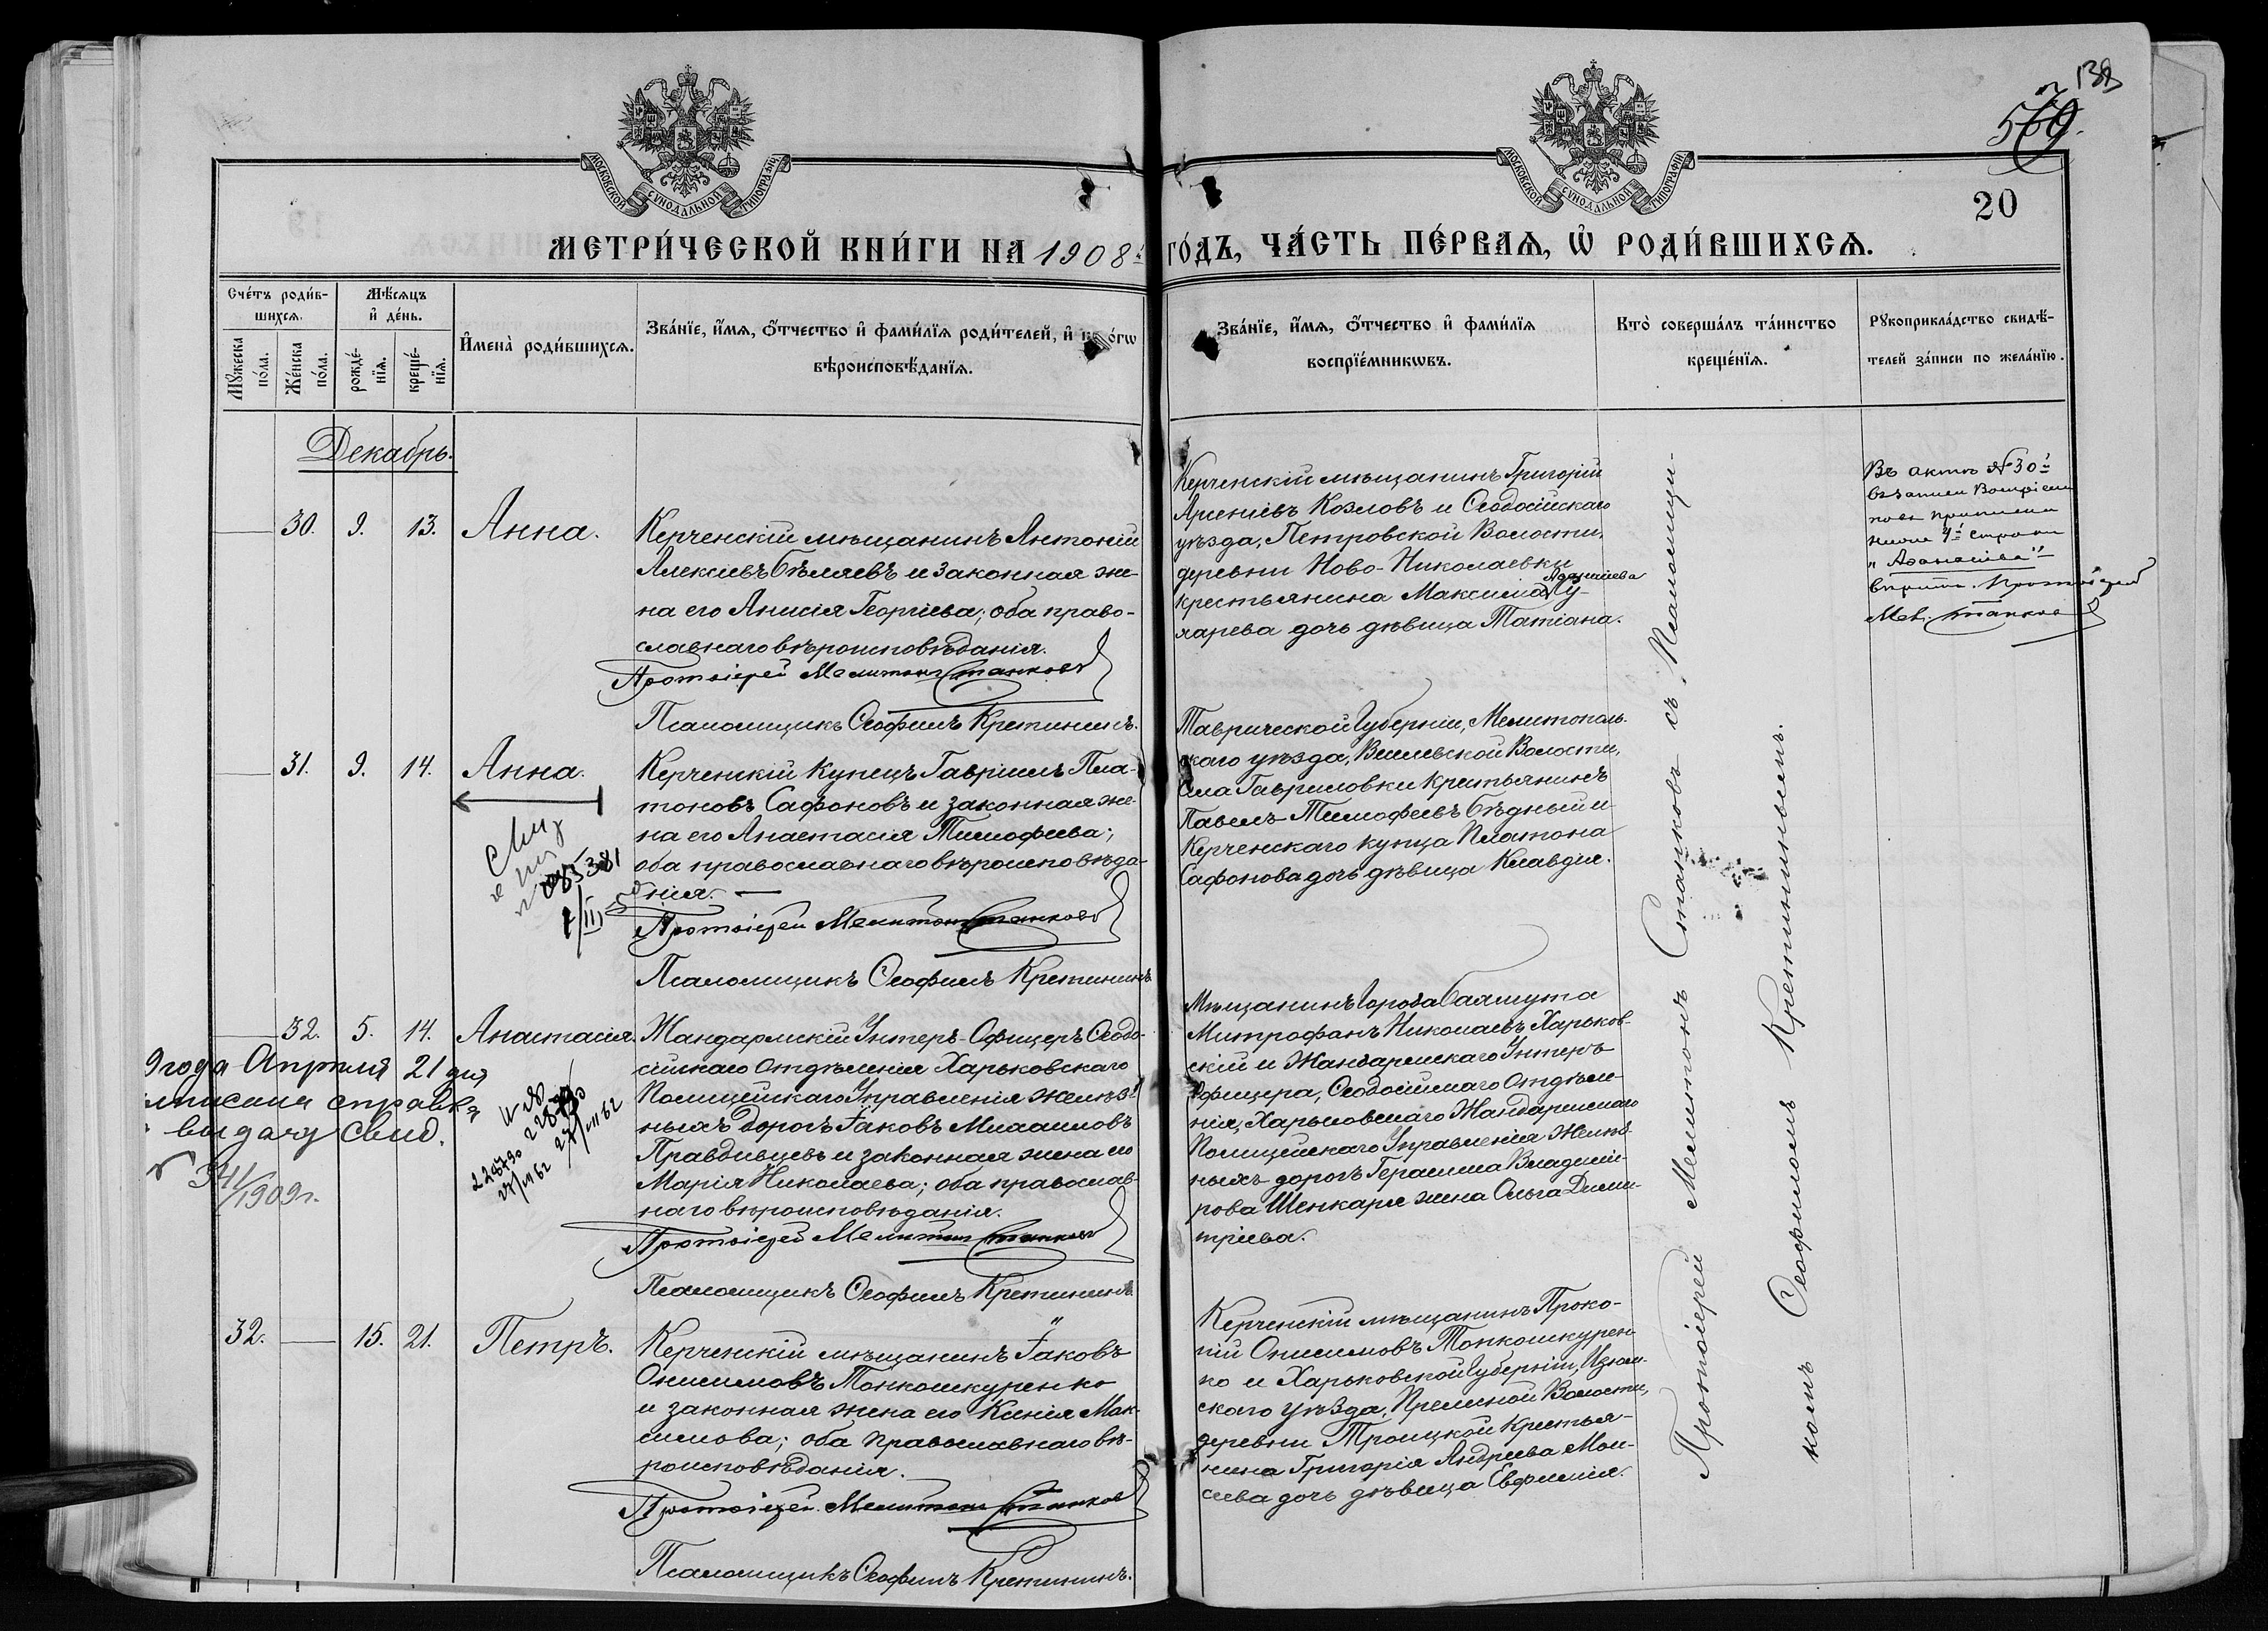 138
569.
20
МОСКОВСКОЙ СѴНОДАЛЬНОЙ ТИПОГРАФІИ
МОСКОВСКОЙ СѴНОДАЛЬНОЙ ТИПОГРАФІИ
МЕТРИ́ЧЕСКОЙ КНИ́ГИ НА 1908й ГО́ДЪ, ЧА́СТЬ ПЕ́РВАѦ, Ѡ҆ РОДИ́ВШИХСѦ.
Сче́тъ роди́в-
шихсѧ.
Мѣ́сѧцъ
и҆ де́нь.
Мꙋ́жеска
по́ла.
Же́нска
по́ла.
рожде́-
нїѧ.
креще́-
нїѧ.
И҆мена̀ роди́вшихсѧ.
Зва́нїе, и҆́мѧ, ѻ҆́тчество и҆ фами́лїѧ роди́телей, и҆ ко́гѡ
вѣроисповѣ́данїѧ.
Зва́нїе, и҆́мѧ, ѻ҆́тчество и҆ фами́лїѧ
воспрїе́мникѡвъ.
Кто̀ соверша́лъ та́инство
креще́нїѧ.
Рꙋкоприкла́дство свидѣ́-
телей за́писи по жела́нїю.
Декабрь.
30. 9. 13. Анна.
Керченскій мѣщанинъ Антоній
Алексіевъ Бѣляевъ и законная же-
на его Анисія Георгіева; оба право-
славнаго вѣроисповѣданія.
Протоіерей Мелитонъ Станковъ
Псаломщикъ Ѳеофилъ Кретининъ.
Керченскій мѣщанинъ Григорій
Арсеніевъ Козловъ и Ѳеодосійскаго
уѣзда, Петровской Волости,
деревни Ново-Николаевки
Аѳанасіева
крестьянина Максима Лу-
харева дочь дѣвица Татіана.
Въ актѣ № 30й
въ записи Воспріем
ковъ приписка
выше 4й строки
„Аѳанасіева"
вѣрна. Протоіерей
Мел. Станков
31. 9. 14. Анна.
Керченскій Купецъ Гавріилъ Пла-
тоновъ Сафоновъ и законная же-
на его Анастасія Тимофеева;
оба православнаго вѣроисповѣда-
нія.
Протоіерей Мелитонъ Станковъ
Псаломщикъ Ѳеофилъ Кретининъ
Таврической Губерніи, Мелитополь-
скаго уѣзда, Веселевской Волости,
села Гавриловки крестьянинъ
Павелъ Тимофеевъ Бѣдный и
Керченскаго купца Платона
Сафонова дочь дѣвица Клавдія.
32. 5. 14. Анастасія.
Жандармскій Унтеръ-Офицеръ Ѳеодо-
сійскаго Отдѣленія Харьковскаго
Полицейскаго Управленія желѣз-
ныхъ дорогъ Іаковъ Михаиловъ
Правдивцевъ и законная жена его
Марія Николаева; оба православ-
наго вѣроисповѣданія.
Протоіерей Мелитонъ Станковъ
Псаломщикъ Ѳеофилъ Кретининъ
Мѣщанинъ города Бахмута
Митрофанъ Николаевъ Харьков-
скій и Жандармскаго Унтеръ
Офицера, Ѳеодосійскаго Отдѣле-
нія, Харьковскаго Жандармскаго
Полицейскаго Управленія Желѣз-
ныхъ дорогъ Герасима Владимі-
рова Шенкаря жена Ольга Дими-
тріева.
9 года Апрѣля 21 дня
справка
выдачу Свид.
341/1909 г.
228790
27/VII 62
32. 15. 21. Петръ.
Керченскій мѣщанинъ Іаковъ
Онисимовъ Тонкошкуренко
и законная жена его Ксенія Мак-
симова; оба православнаго вѣ-
роисповѣданія.
Протоіерей Мелитонъ Станков
Псаломщикъ Ѳеофилъ Кретининъ.
Керченскій мѣщанинъ Проко-
пій Онисимовъ Тонкошкурен-
ко и Харьковской Губерніи, Изюм-
скаго уѣзда, Волости,
деревни Троицкой крестья-
нина Григорія Андреева Мои-
сеева дочь дѣвица Евфимія.
Протоіерей Мелитонъ Станковъ съ Псаломщи-
комъ Ѳеофиломъ Кретининымъ.